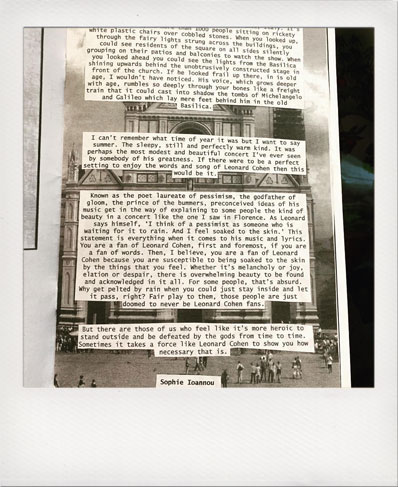 1000 people sitting on rickety
white plastic chairs over cobbled stones. When you looked
through the fairy lights strung across the buildings, you
could see residents of the square on all sides silently
grouping on their patios and balconies to watch the show. When
you looked ahead you could see the lights from the Basilica
shining upwards behind the unobtrusively constructed stage in
front of the church. If he looked frail up there, in is old
age, I wouldn't have noticed. His voice, which grows deeper
with age, rumbles so deeply through your bones like a freight
train that it could cast into shadow the tombs of Michelangelo
and Galileo which lay mere feet behind him in the old
Basilica.
I can't remember what time of year it was but I want to say
summer. The sleepy, still and perfectly warm kind. It was
perhaps the most modest and beautiful concert I've ever seen
by somebody of his greatness. If there were to be a perfect
setting to enjoy the words and song of Leonard Cohen then this
would be it.
Known as the poet laureate of pessimism, the godfather of
gloom, the prince of the bummers, preconceived ideas of his
music get in the way of explaining to some people the kind of
beauty in a concert like the one I saw in Florence. As Leonard
says himself, 'I think of a pessimist as someone who is
waiting for it to rain. And I feel soaked to the skin.' This
statement is everything when it comes to his music and lyrics.
You are a fan of Leonard Cohen, first and foremost, if you are
a fan of words. Then, I believe, you are a fan of Leonard
Cohen because you are susceptible to being soaked to the skin
by the things that you feel. Whether it's melancholy or joy,
elation or despair, there is overwhelming beauty to be found
and acknowledged in it all. For some people, that's absurd.
Why get pelted by rain when you could just stay inside and let
it pass, right? Fair play to them, those people are just
doomed to never be Leonard Cohen fans.
But there are those of us who feel like it's more heroic to
stand outside and be defeated by the gods from time to time.
Sometimes it takes a force like Leonard Cohen to show you how
necessary that is.
Sophie Ioannou